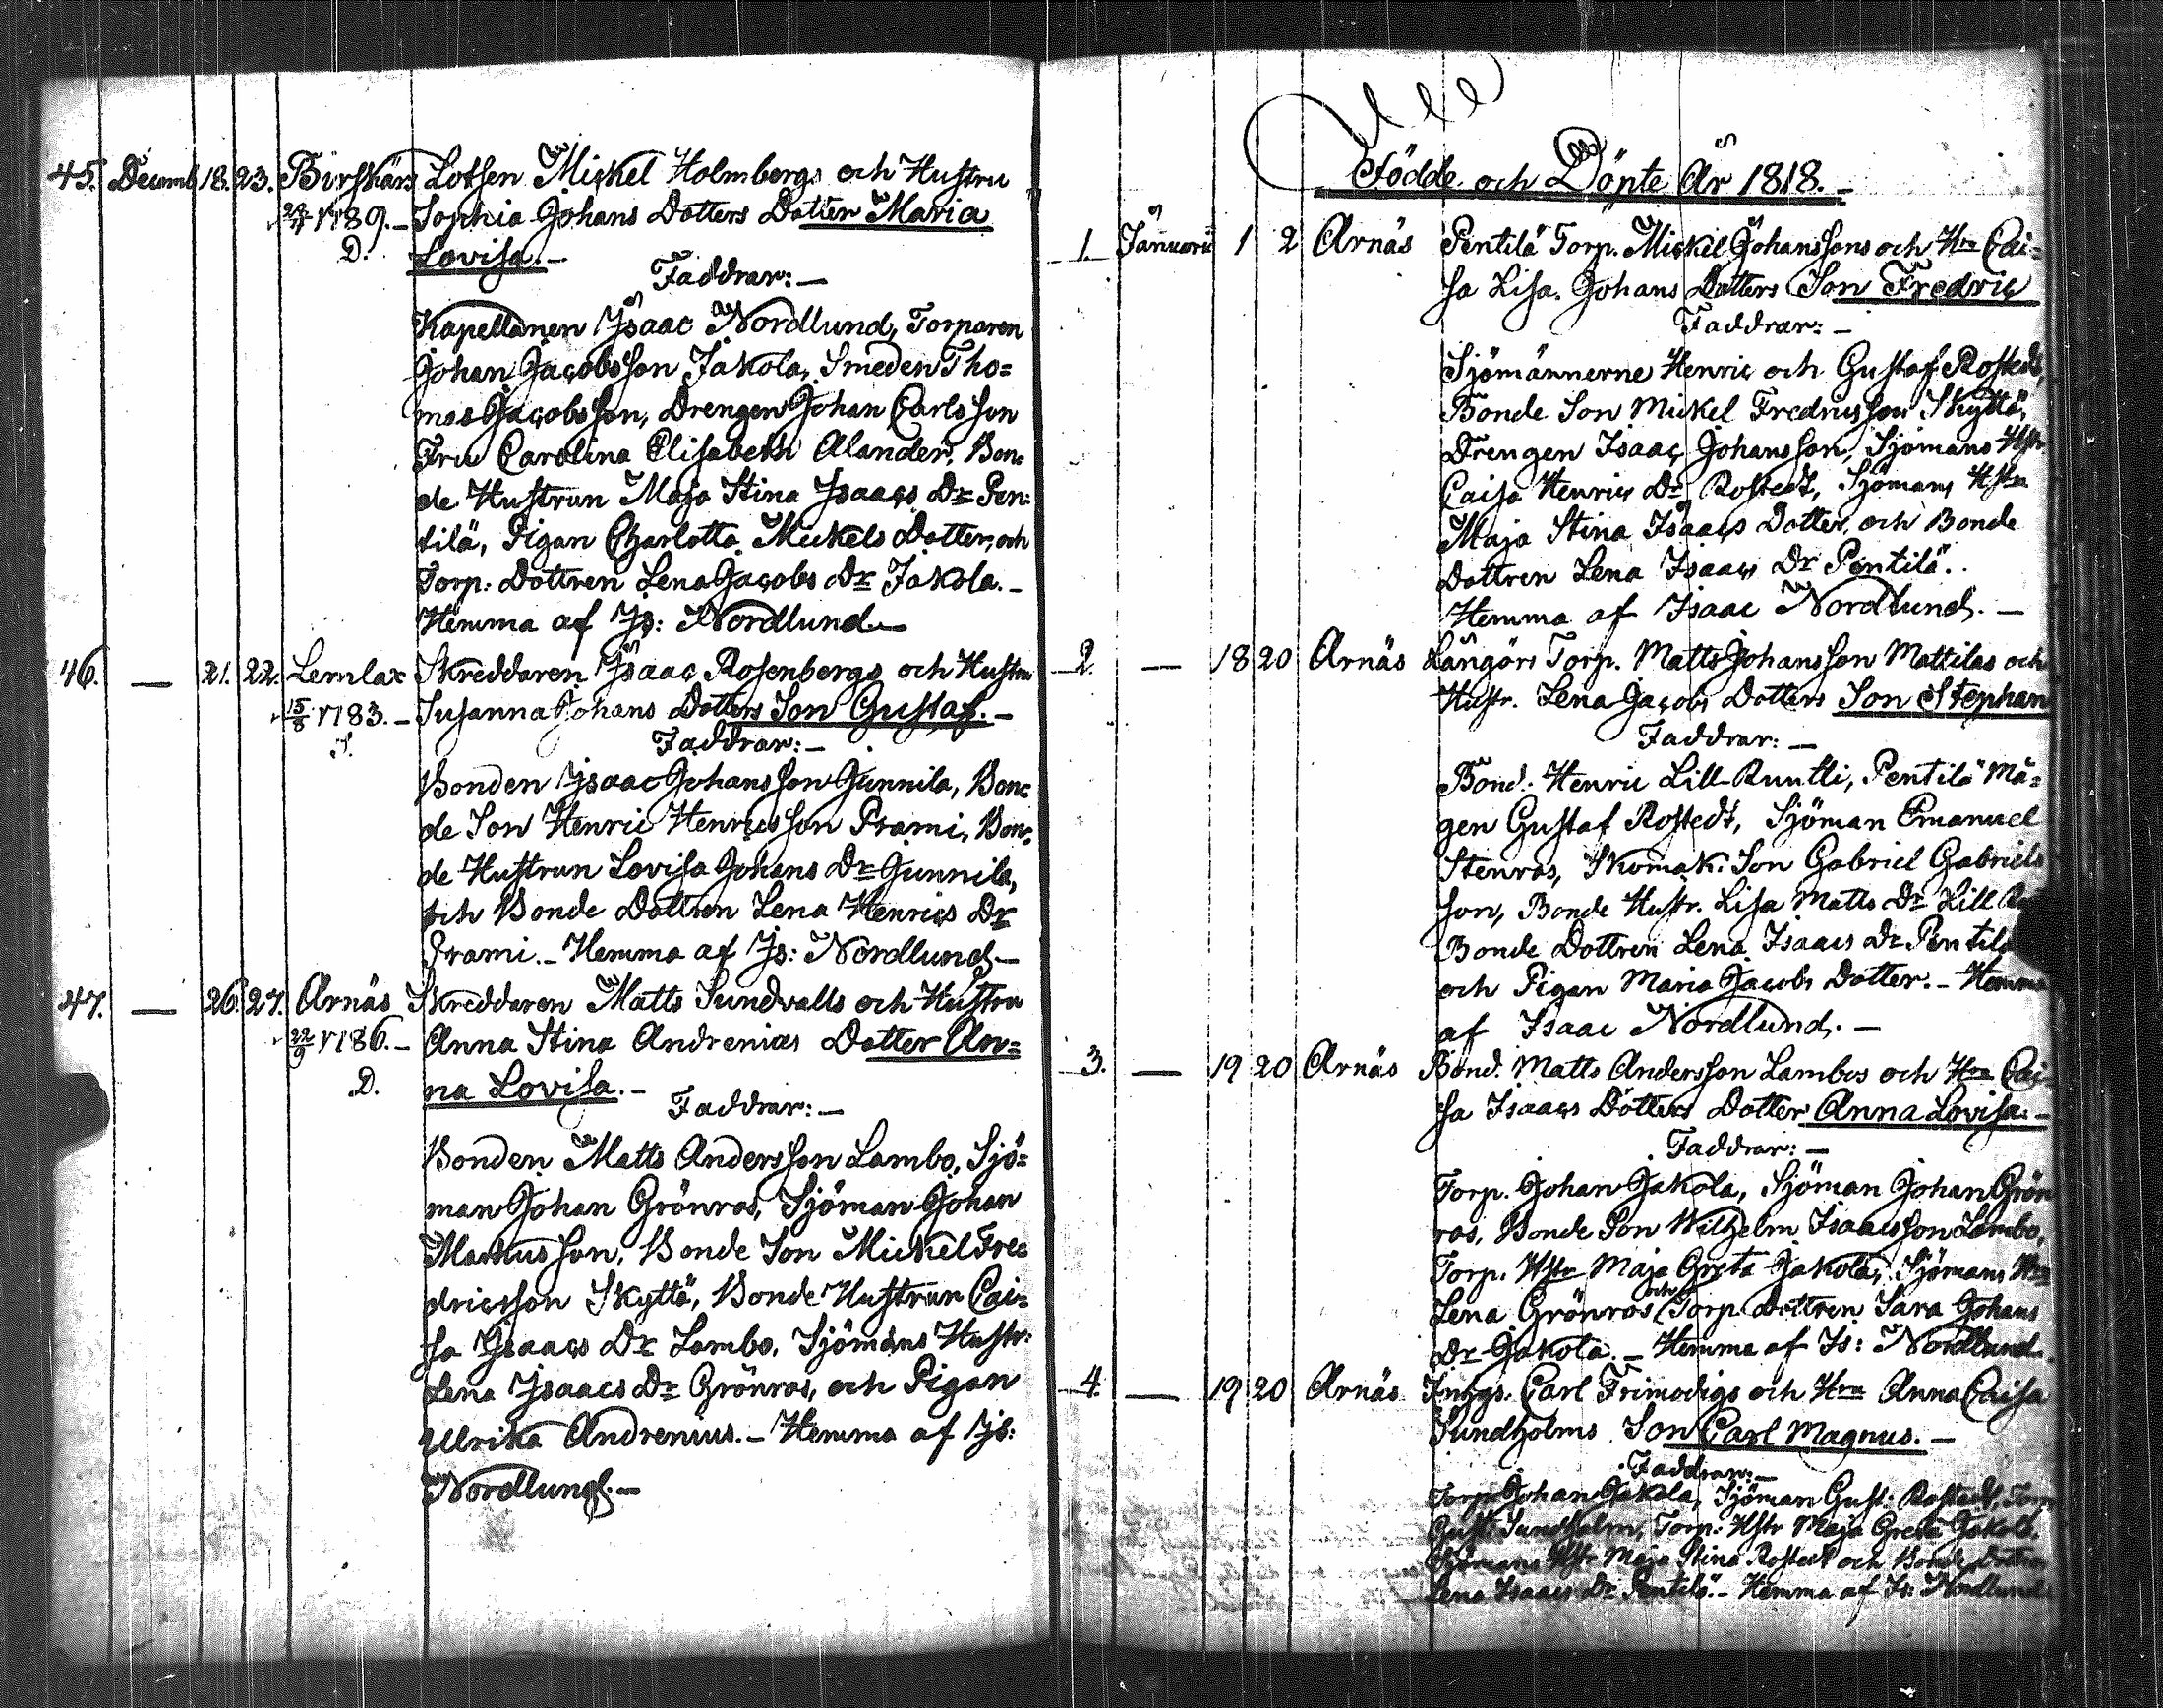 45. Decemb. 18. 23. Birskärs Lotsen Mickel Holmbergs och Hustru
1789. – Sophia Johans Dotters Dotter Maria
D. Lovisa. –
Faddrar: –
Kapellanen Isaac Nordlund, Torparen
Johan Jacobsson Jakola, Smeden Tho=
mas Jacobsson, Drengen Johan Carlsson
Fru Carolina Elisabeth Alander, Bon=
de Hustrun Maja Stina Isaacs Dr Pen=
tilä, Pigan Charlotta Mickels Dotter, och
Torp: Dottren Lena Jacobs Dr Jakola. –
Hemma af Is: Nordlund. –
46. — 21. 22. Lemlax Skreddaren Isaac Rosenbergs och Hustru
15/8 1783. – Susanna Johans Dotters Son Gustaf. –
S.
Faddrar: –
Bonden Isaac Johansson Gunnila, Bon=
de Son Henric Henricsson Prami, Bon=
de Hustrun Lovisa Johans Dr Gunnila,
och Bonde Dottren Lena Henrics Dr
Prami. – Hemma af Is: Nordlund. –
47. — 26. 27. Arnäs Skreddaren Matts Sundvalls och Hustru
22/9 1786. – Anna Stina Andrenias Dotter An=
D. na Lovisa. –
Faddrar: –
Bonden Matts Andersson Lambo, Sjö=
man Johan Grönroos, Sjöman Johan
Mattsson, Bonde Son Mickel Fre=
dricsson Skyttä, Bonde Hustrun Cai=
sa Isaacs Dr Lambo, Sjömans Hustr:
Lena Isaacs Dr Grönroos, och Pigan
Ulrika Andrenius. – Hemma af Is:
Nordlund. –
Födde och Döpte År 1818. –
1. Januarii 1 2 Arnäs Pentilä Torp. Mickel Johanssons och Hru Cai=
sa Lisa Johans Dotters Son Fredric
Faddrar: –
Sjömännerne Henric och Gustaf Rostedt,
Bonde Son Mickel Fredricsson Skyttä,
Drengen Isaac Johansson, Sjömans Hstr
Caisa Henrics Dr Rostedt, Sjömans Hstru
Maja Stina Isaacs Dotter, och Bonde
Dottren Lena Isaacs Dr Pentilä.
Hemma af Isaac Nordlund. –
2. — 18 20 Arnäs Långörs Torp. Matts Johansson Mattilas och
Hustr. Lena Jacobs Dotters Son Stephan
Faddrar: –
Bond. Henric Lill-Runtti, Pentilä Må=
gen Gustaf Rostedt, Sjöman Emanuel
Stenroos, Skomak. Son Gabriel Gabriels
son, Bonde Hustr. Lisa Matts Dr Lill
Bonde Dottren Lena Isaacs Dr Pentilä
och Pigan Maria Jacobs Dotter. – Hemma
af Isaac Nordlund. –
3. — 19 20 Arnäs Bond. Matts Andersson Lambos och Hru Cai=
sa Isaacs Dotters Dotter Anna Lovisa. –
Faddrar: –
Torp. Johan Jakola, Sjöman Johan Grön
roos, Bonde Son Wilhelm Isaacsson Lambo,
Torp. Hstr Maja Greta Jakola, Sjömans Hru
Lena Grönroos och Torp. Dottren Sara Johans
Dr Jakola. – Hemma af Is: Nordlund.
4. — 19 20 Arnäs Inhys. Carl Frimodigs och Hru Anna Caisa
Sundholms Son Carl Magnus. –
Faddrar: –
Torp. Johan Jakola, Sjöman Gust: Rostedt, Torp
Gust. Sundholm, Torp: Hstr Maja Greta Jakola,
Sjömans Hstr Maja Stina Rostedt och Bonde Dottren
Lena Isaacs Dr Pentilä. – Hemma af Is: Nordlund